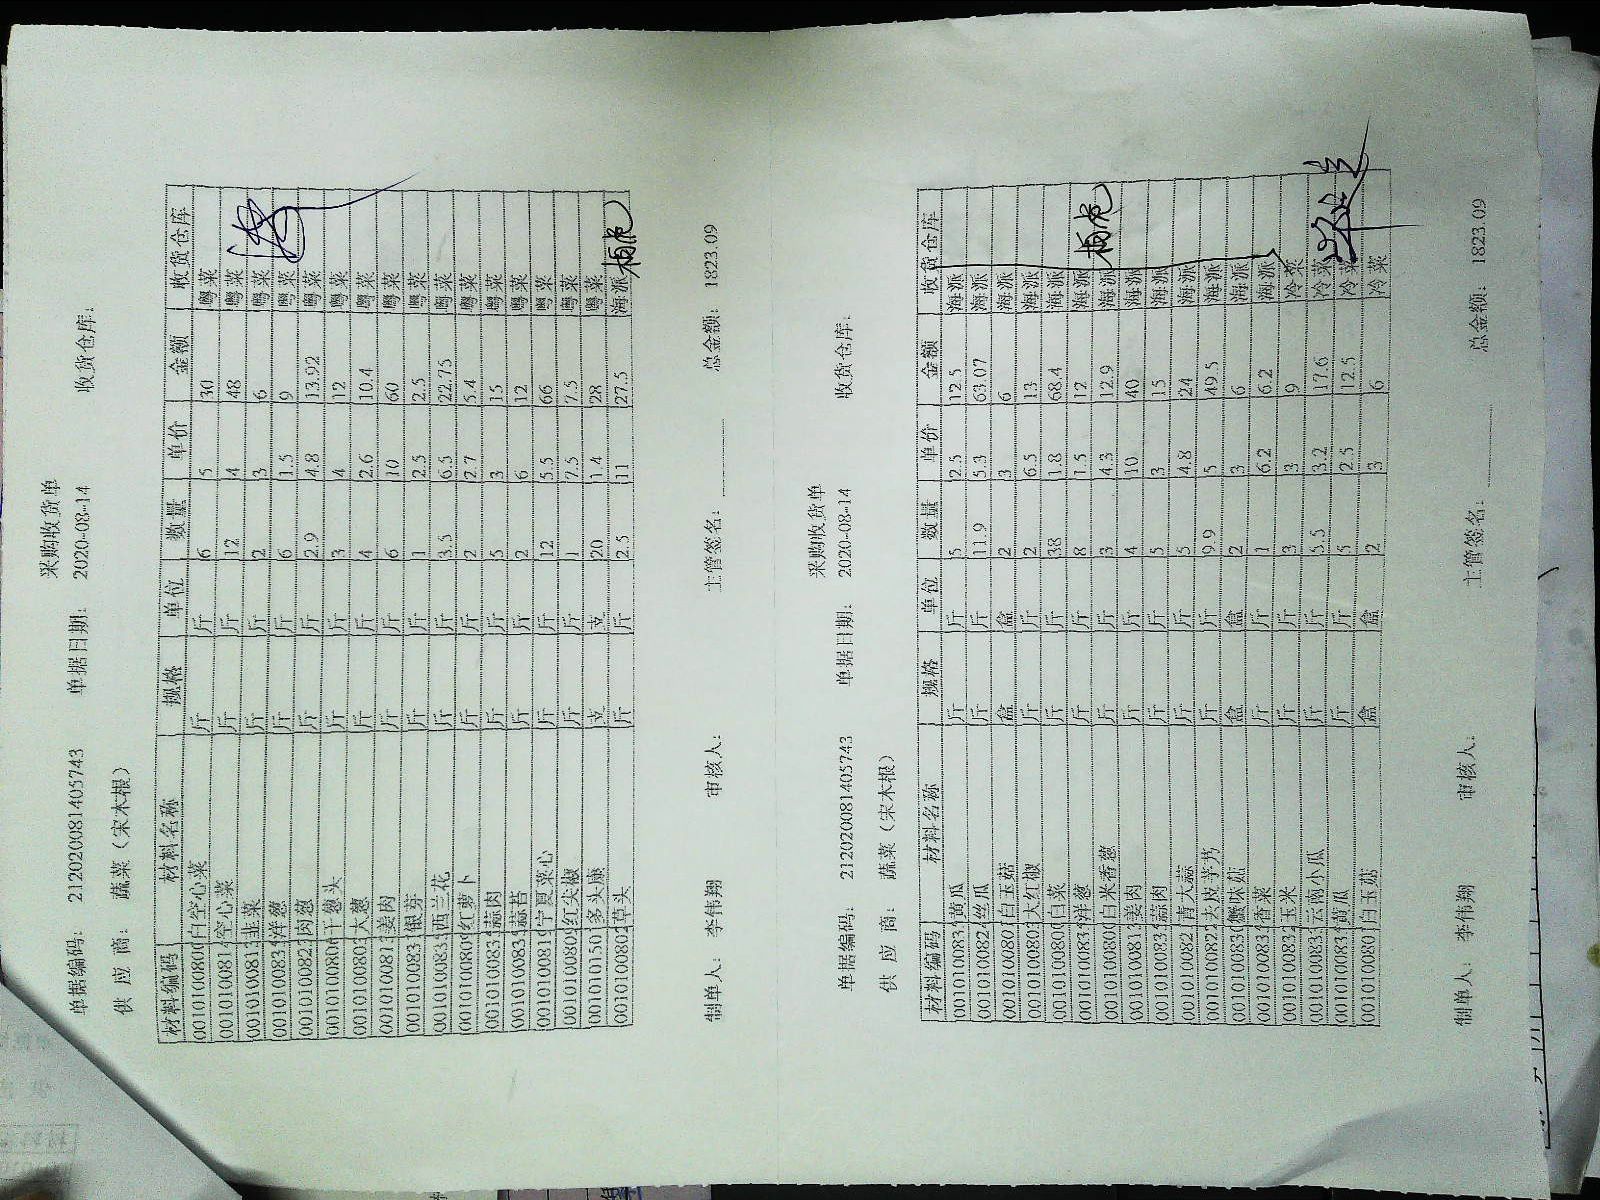 采购收货单
单据编码： 212020081405743 单据日期： 2020-08-14 收货仓库：
供 应 商： 蔬菜（宋木根）
材料编码 材料名称 规格 单位 数量 单价 金额 收货仓库
0010100800 白空心菜 斤 斤 6 5 30 粤菜
0010100814 空心菜 斤 斤 12 4 48 粤菜
0010100813 韭菜 斤 斤 2 3 6 粤菜
0010100834 洋葱 斤 斤 6 1.5 9 粤菜
0010100823 肉葱 斤 斤 2.9 4.8 13.92 粤菜
0010100806 干葱头 斤 斤 3 4 12 粤菜
0010100803 大葱 斤 斤 4 2.6 10.4 粤菜
0010100813 姜肉 斤 斤 6 10 60 粤菜
001010083 银芽 斤 斤 1 2.5 2.5 粤菜
0010100831 西兰花 斤 斤 3.5 6.5 22.75 粤菜
0010100809 红萝卜 斤 斤 2 2.7 5.4 粤菜
001010083 蒜肉 斤 斤 5 3 15 粤菜
001010083 蒜苔 斤 斤 2 6 12 粤菜
0010100819 宁夏菜心 斤 斤 12 5.5 66 粤菜
0010100809 红尖椒 斤 斤 1 7.5 7.5 粤菜
0010101501 多头康 支 支 20 1.4 28 粤菜
0010100802 草头 斤 斤 2.5 11 27.5 海派
制单人： 李伟翔 审核人： 主管签名： 总金额： 1823.09
采购收货单
单据编码： 212020081405743 单据日期： 2020-08-14 收货仓库：
供 应 商： 蔬菜（宋木根）
材料编码 材料名称 规格 单位 数量 单价 金额 收货仓库
0010100831 黄瓜 斤 斤 5 2.5 12.5 海派
0010100824 丝瓜 斤 斤 11.9 5.3 63.07 海派
0010100801 白玉菇 盒 盒 2 3 6 海派
0010100803 大红椒 斤 斤 2 6.5 13 海派
0010100800 白菜 斤 斤 38 1.8 68.4 海派
0010100834 洋葱 斤 斤 8 1.5 12 海派
0010100800 白米香葱 斤 斤 3 4.3 12.9 海派
0010100813 姜肉 斤 斤 4 10 40 海派
001010083 蒜肉 斤 斤 5 3 15 海派
0010100821 青大蒜 斤 斤 5 4.8 24 海派
0010100822 去皮芋艿 斤 斤 9.9 5 49.5 海派
0010100830 蟹味菇 盒 盒 2 3 6 海派
0010100834 香菜 斤 斤 1 6.2 6.2 海派
0010100832 玉米 斤 斤 3 3 9 冷菜
0010100833 云南小瓜 斤 斤 5.5 3.2 17.6 冷菜
0010100831 黄瓜 斤 斤 5 2.5 12.5 冷菜
0010100801 白玉菇 盒 盒 2 3 6 冷菜
制单人： 李伟翔 审核人： 主管签名： 总金额： 1823.09